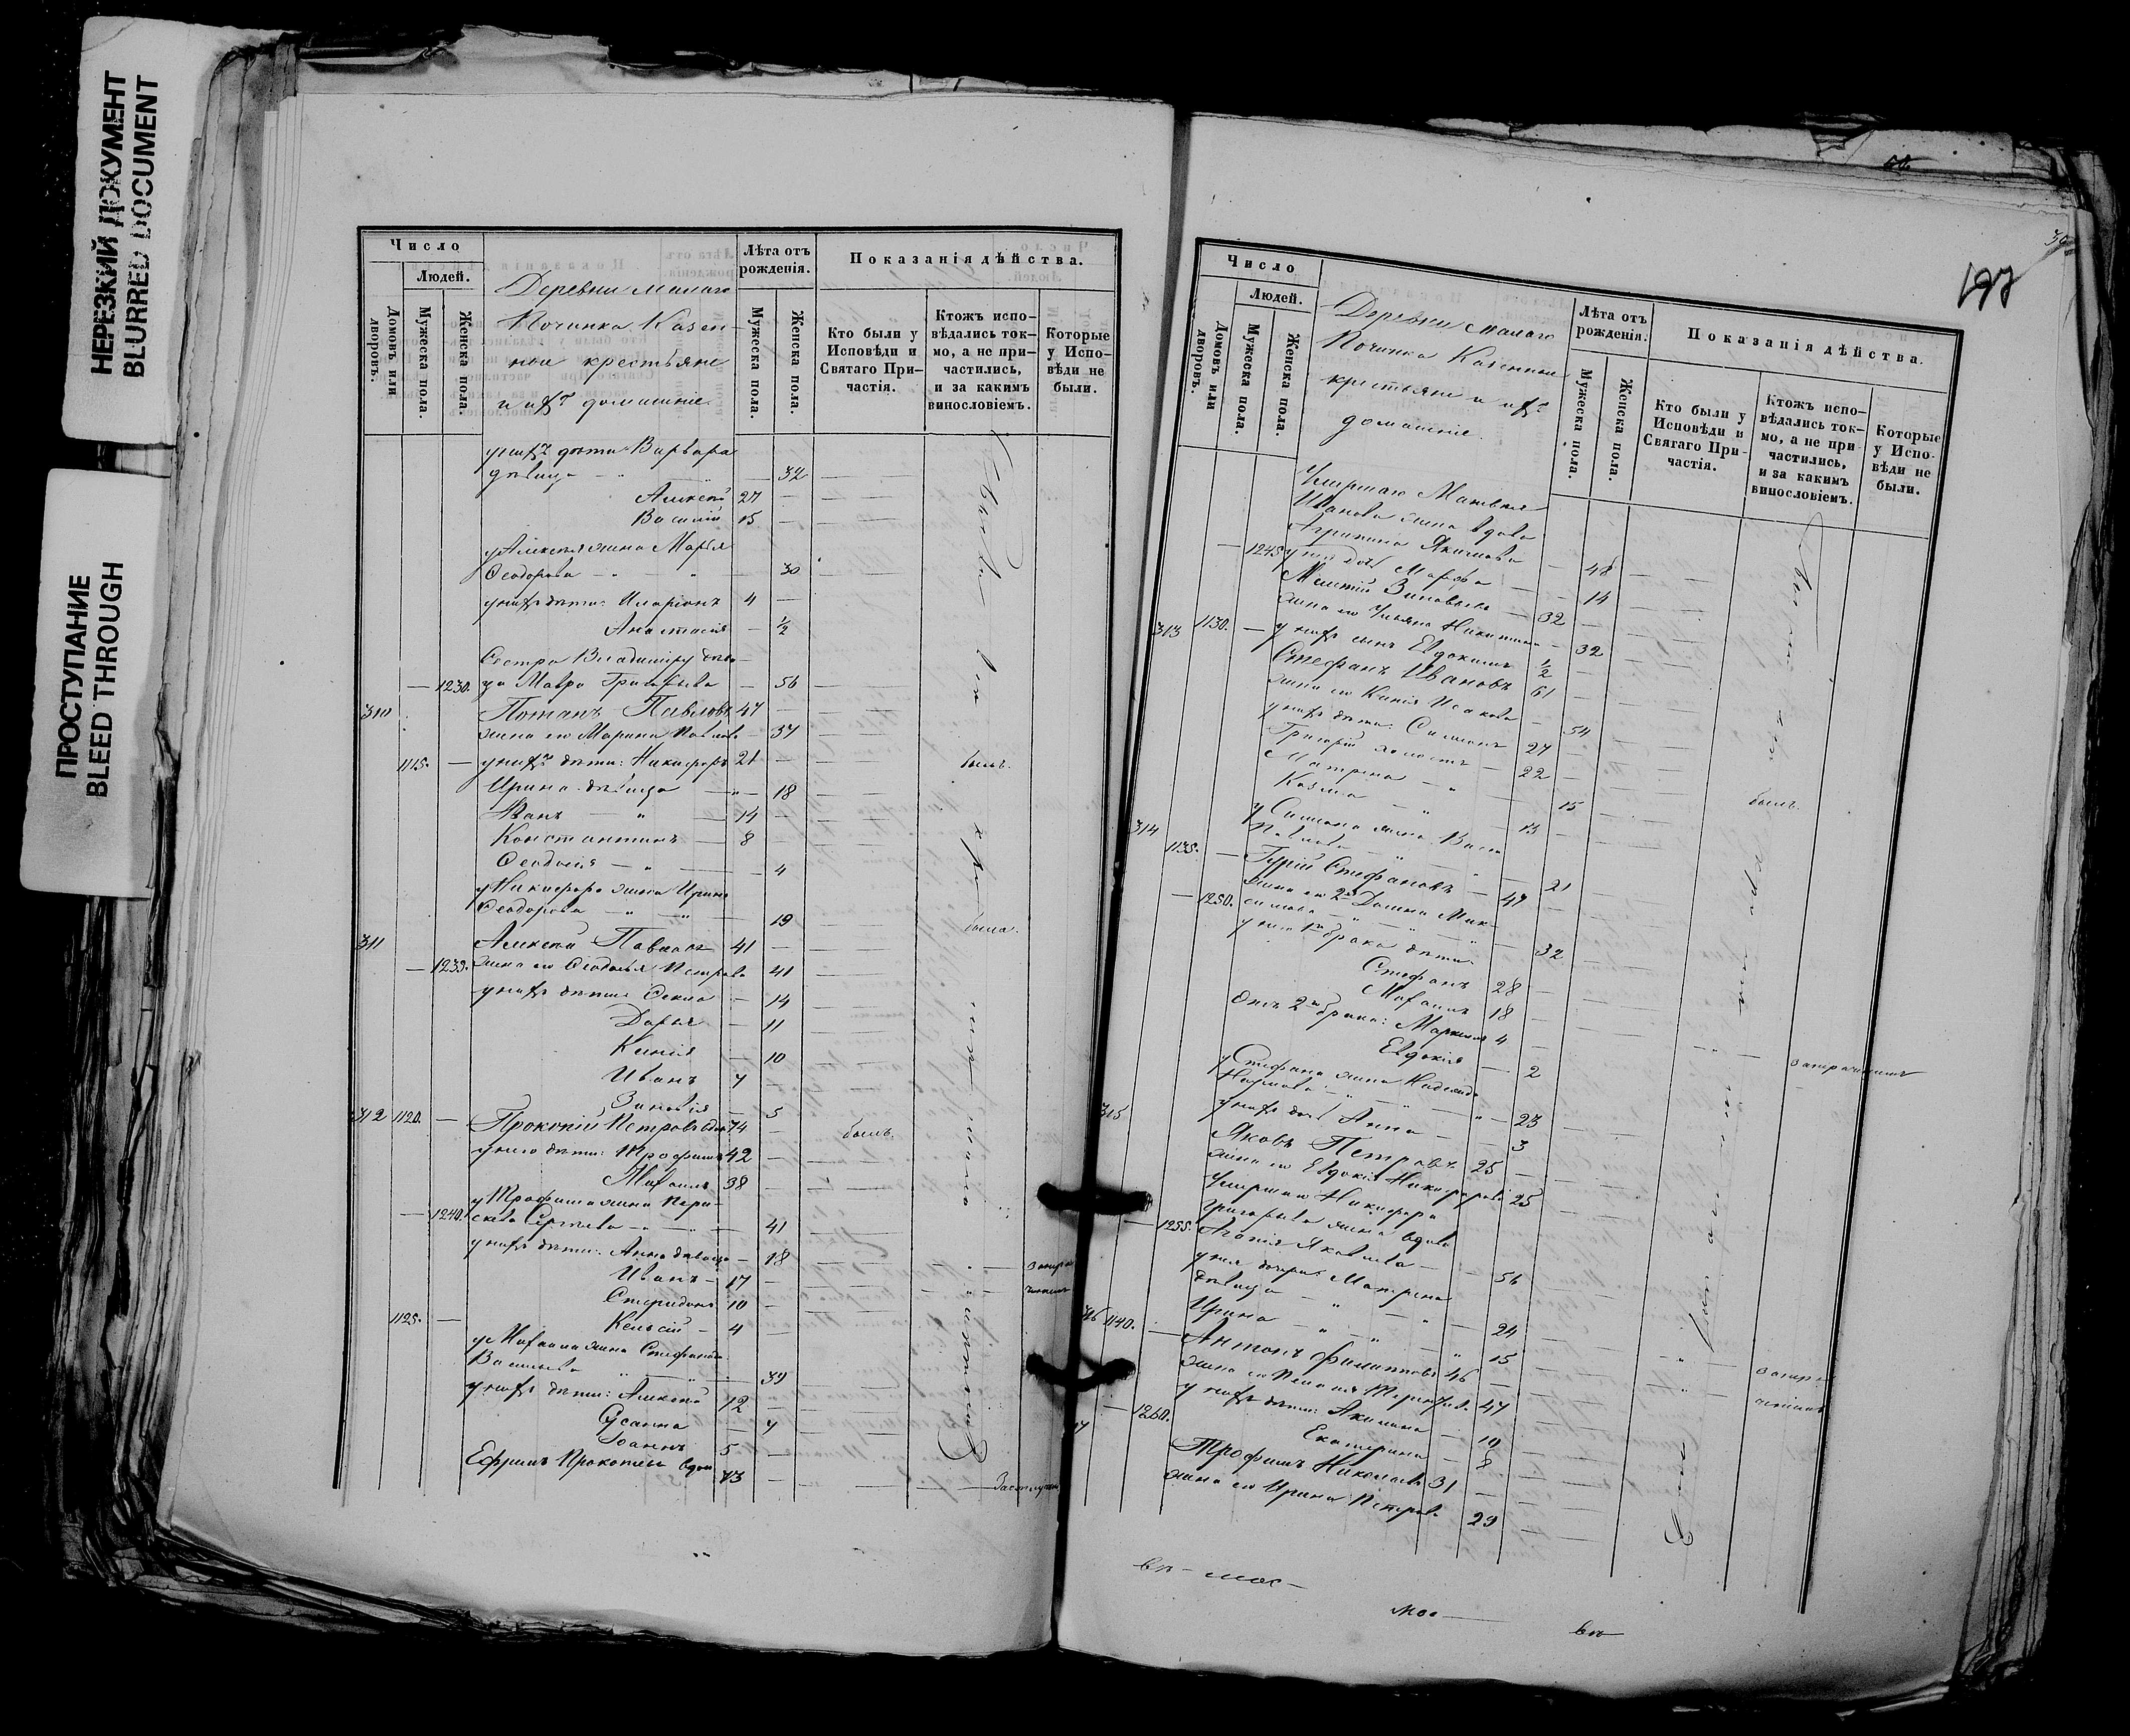 НЕРЕЗКИЙ ДОКУМЕНТ
BLURRED DOCUMENT
ПРОСТУПАНИЕ
BLEED THROUGH
Число
Людей.
Домовъ или дворовъ.
Мужеска пола.
Женска пола.
Деревни Малаго
Починка Казен-
ные крестьяне
и ихъ домашніе
Лѣта отъ рожденія.
Мужеска пола.
Женска пола.
Показанія дѣйства.
Кто были у Исповѣди и Святаго При-частія.
Ктожъ испо-вѣдались ток-мо, а не при-частились, и за какимъ винословіемъ.
Которые у Испо-вѣди не были.
у нихъ дѣти: Варвара
дѣвица 32
Алексѣй 27
Василій 15
у Алексѣя жена Марѳа
Ѳеодорова 30
у нихъ дѣти: Иларіонъ 4
Анастасія ½
Сестра Владиміру дѣви-
1230. ца Мавра 56
310 Потапъ Павловъ 47
жена его Марина 37
1115. у нихъ дѣти: Никифоръ 21 былъ.
Ирина дѣвица 18
Иванъ 14
Константинъ 8
Ѳеодосія 4
у Никифора жена Ирина
Ѳеодорова 19 была.
311 Алексѣй Павловъ 41
1235. жена его Ѳеодосья Петрова 41
у нихъ дѣти: Ѳекла 14
Дарья 11
Ксенія 10
Иванъ 7
Зиновія 5
312 1120. Прокопій Петровъ вдов 74 былъ.
у него дѣти: Трофимъ 42
Михаилъ 38
у Трофима жена Пара-
1240. скева Сергѣева 41
у нихъ дѣти: Анна дѣвица 18
Иванъ 17
Спиридонъ 10
1125. Кельсій 4
у Михаила жена Стефанида
Васильева 39
у нихъ дѣти: Алексѣй 12
Сусанна 7
Іоаннъ 5
Ефремъ Прокопьевъ вдов 73
197
Число
Людей.
Домовъ или дворовъ.
Мужеска пола.
Женска пола.
Деревни Малаго
Починка Казенные
крестьяне и ихъ
домашніе.
Лѣта отъ рожденія.
Мужеска пола.
Женска пола.
Показанія дѣйства.
Кто были у Исповѣди и Святаго При-частія.
Ктожъ испо-вѣдались ток-мо, а не при-частились, и за какимъ винословіемъ.
Которые у Испо-вѣди не были.
Умершаго Матвѣя
Иванова жена вдова
Агрипина Якимова 48
1245 у нея дочь Марѳа 14
Мелетій Зиновьевъ 32
жена его Ульяна Никитина 32
313 1130. у нихъ сынъ Евдокимъ ½
Стефанъ Ивановъ 61
жена его Ксенія Исакова 54
у нихъ дѣти: Симеонъ 27
Григорій холостъ 22
Матрена 15 былъ.
Козма 13
у Симеона жена Васса
314 Павлова 21
1135. Гурій Стефановъ 47
жена его 2я Домна Мак-
1250. симова 32
у него 1го брака дѣти:
Стефанъ 28
Михаилъ 18
Отъ 2го брака: 4
Евдокія 2
у Стефана жена Надежда
Наумова 23
у нихъ дочь Анна 3
315 Яковъ Петровъ 25
жена его Евдокія Никифорова 25
Умершаго Никифора
Григорьева жена вдова
1255. Агафія Яковлева 56
у нея дочери Матрена
дѣвица 24
Ирина 15
316 1140. Антонъ Филиповъ 46
жена его 47
у нихъ дѣти: Акилина 10
1260. Екатерина 8
Трофимъ Николаевъ 31
жена его Ирина Петрова 29